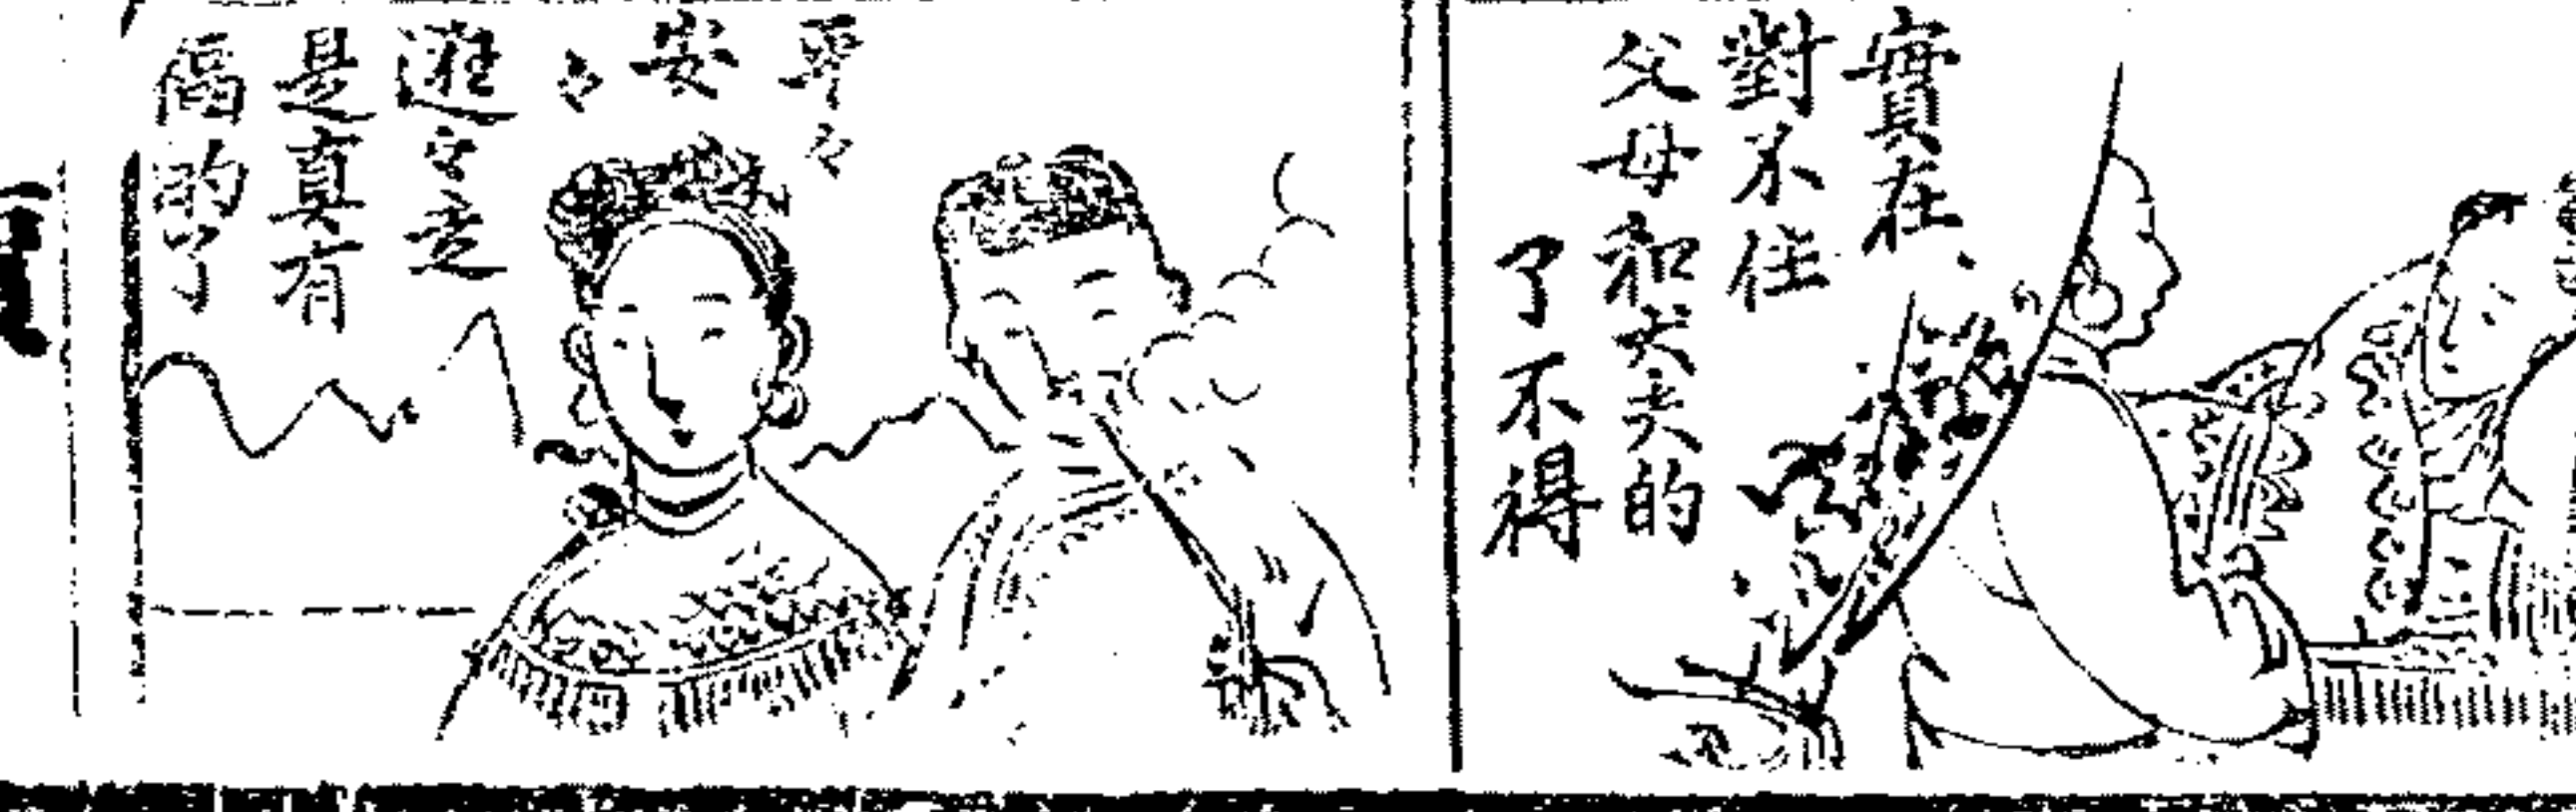 實在
對不住
父母和丈夫的
了不得
平々
安々
遊々走
是真有
福的了